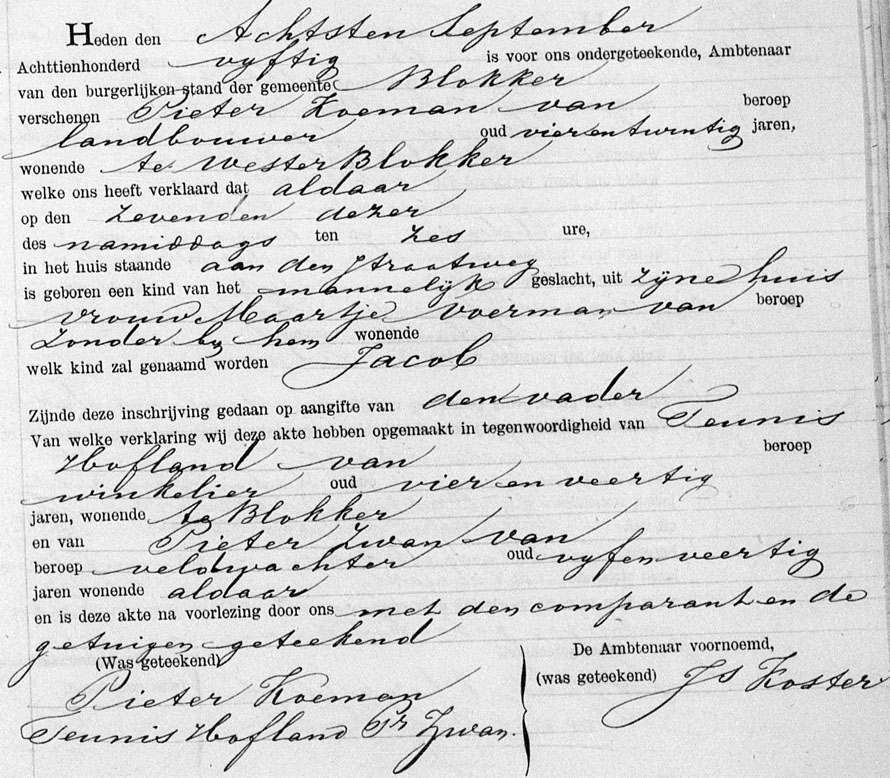 Heden den Achtsten September
Achttienhonderd vyftig is voor ons ondergeteekende, Ambtenaar
van den burgerlijken stand der gemeente Blokker
verschenen Pieter Koeman van beroep
landbouwer oud vier en twintig jaren,
wonende te WesterBlokker
welke ons heeft verklaard dat aldaar
op den Zevenden dezer
des namiddags ten zes ure,
in het huis staande aan den Straatweg
is geboren een kind van het mannelyk geslacht, uit zyne huis
vrouw Maartje Voorman van beroep
zonder by hem wonende
welk kind zal genaamd worden Jacob
Zijnde deze inschrijving gedaan op aangifte van den vader
Van welke verklaring wij deze akte hebben opgemaakt in tegenwoordigheid van Teunis
Hofland van beroep
winkelier oud vier en veertig
jaren, wonende te Blokker
en van Pieter Zwan van
beroep veldwachter oud vyf en veertig
jaren wonende aldaar
en is deze akte na voorlezing door ons met den comparant en de
getuigen geteekend
(Was geteekend) De Ambtenaar voornoemd,
Pieter Koeman (was geteekend) Js Koster
Teunis Hofland Pr Zwan.